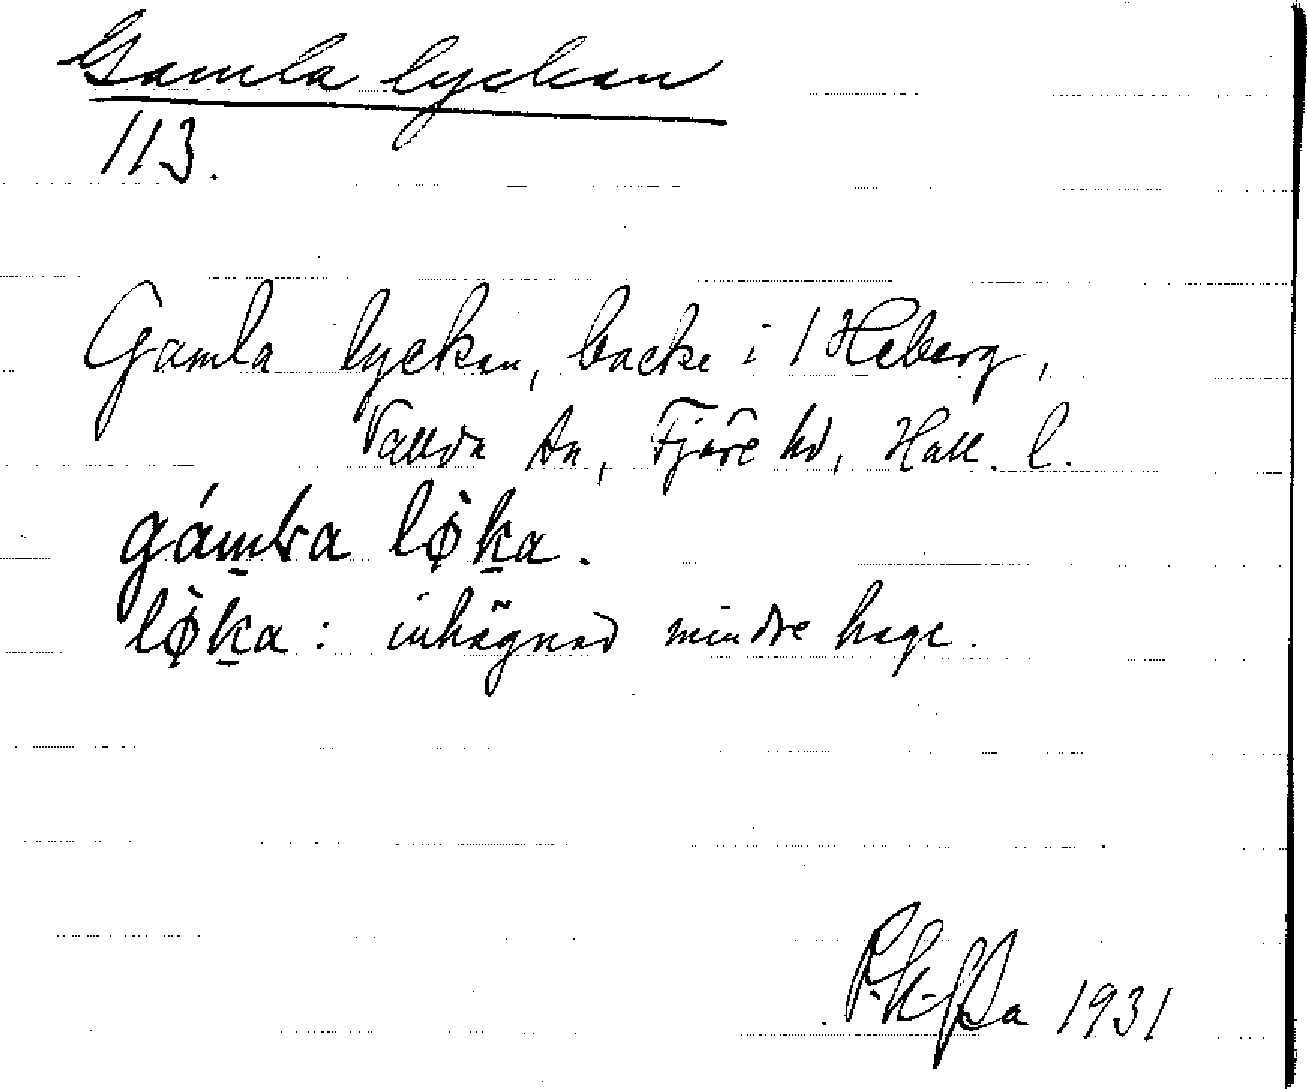 Gamla lyckan
113.
Gamla lyckan, backe i 1 Heberg,
Vallda sn, Fjäre hd, Hall. l.
gám̲ła lø̀k̲a.
lø̀k̲a: inhägnad mindre hage.
1931